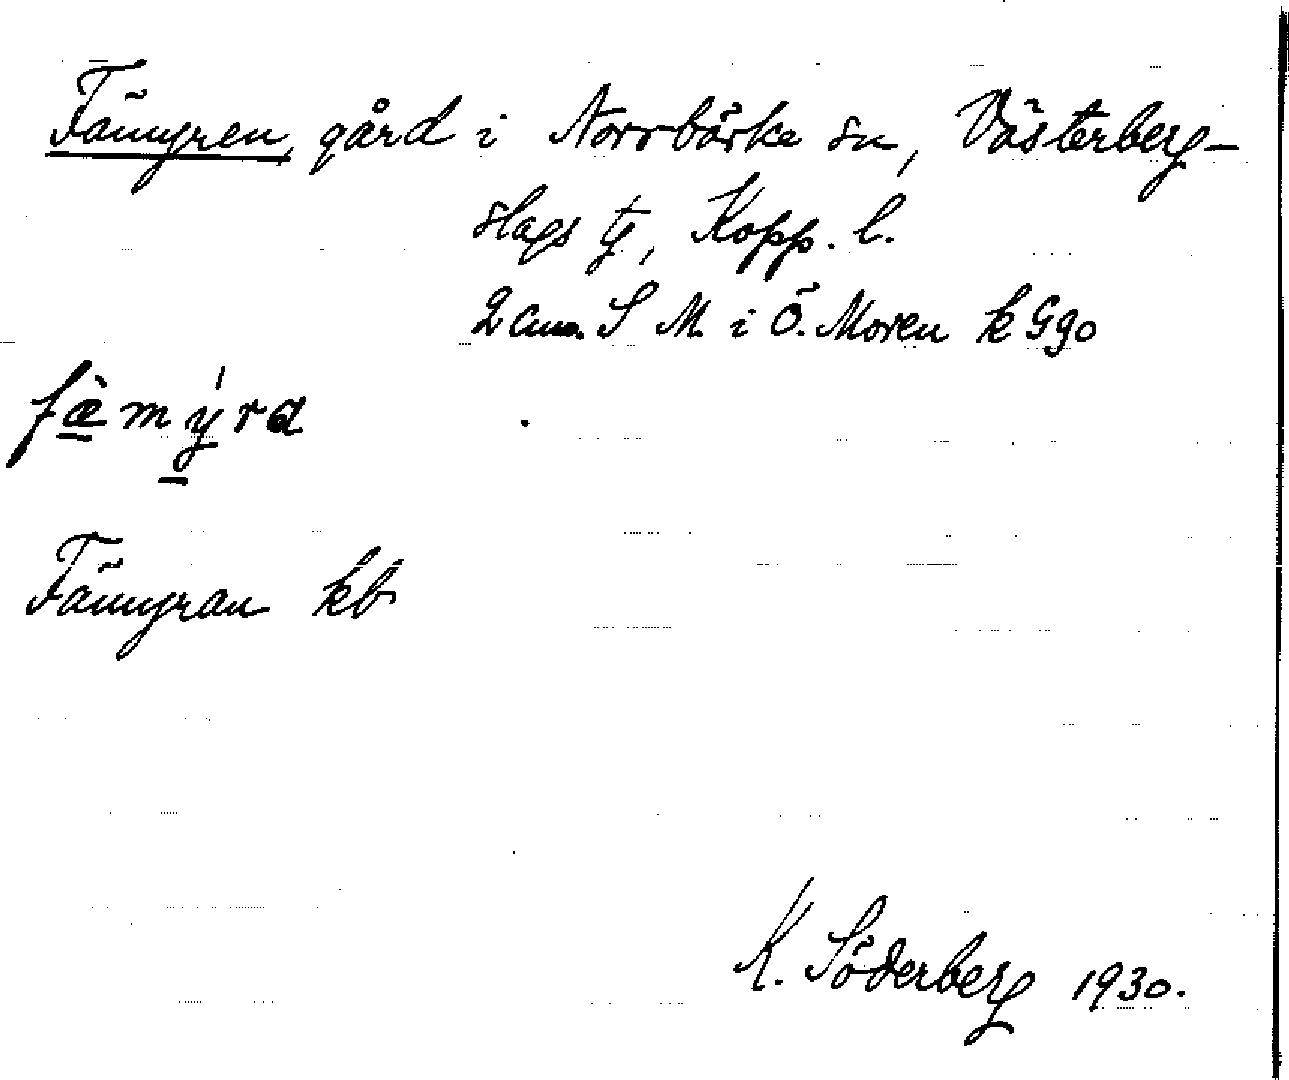 Fämyren, gård i Norrbärke sn, Västerberg-
slags tg, Kopp. l.
2 cm. S M. i Ö. Moren k Ggo
fæ̀mýra
Fämyran kb
K. Söderberg 1930.